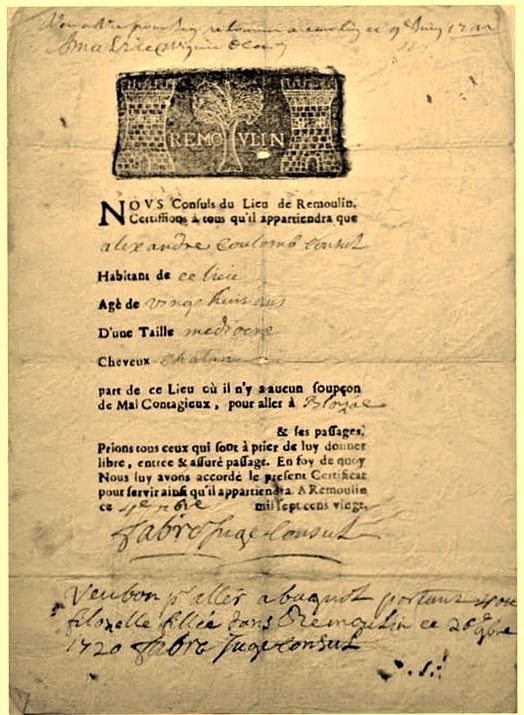 REMOVLIN
NOVS Consuls du Lieu de Remoulin.
Certifions à tous qu'il appartiendra que
alexandre coulomb consul
Habitant de ce lieu
Agé de vingt huit ans
D'une Taille mediocre
Cheveux chatain
part de ce Lieu où il n'y a aucun soupçon
de Mal Contagieux, pour aller à
& ses passages,
Prions tous ceux qui sont à prier de luy donner
libre, entrée & assuré passage. En foy de quoy
Nous luy avons accordé le present Certificat
pour servir ainsi qu'il appartiendra. A Remoulin
ce 4e nbre mil sept cens vingt,
fabre Juge Consul
Veu bon pr aller a bagnol portant
filozelle fillée dans Remoulin ce 26
1720 fabre Juge consul